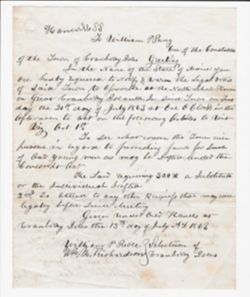 Hancock SS
To William P Preble
One of the Constables
of the Town of Cranberry Isles Greeting
In the Name of the State of Maine you
are hereby required to Notify & warn the legal voters
of said Town to assemble at the North School House
on Great Cranberry Isle in said Town on
day the 20th of July 1863 at One O Clock in the
afternoon to act on the following Articles to Wit
Art 1st
To see what course the Town will
pursue in regard to furnishing funds for such
of our young men as may be drafted under the
Conscript Act
The Said 300$ a Substitute
or the Individual Drafted
2nd To attend to any other Business that may come
legally before said Meeting
Given under Our Hands at
Cranberry Isles the 13th day of July AD 1863
William P Preble
Wm Richardson
Selectmen of
Cranberry Isles